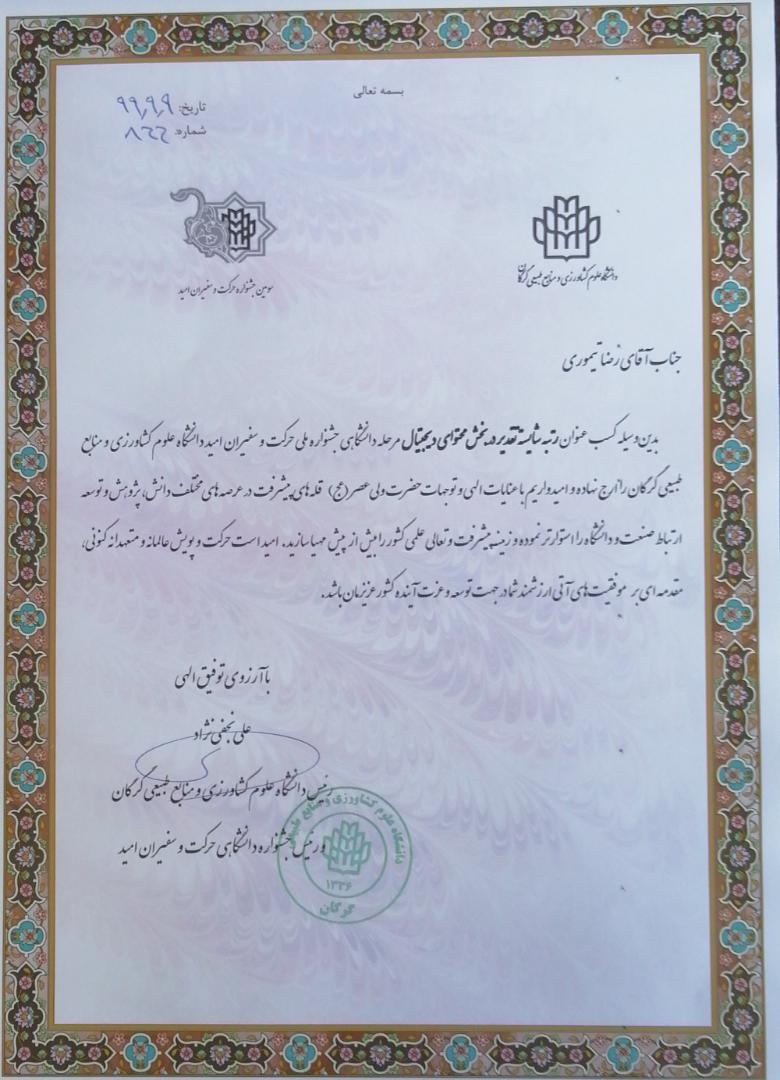 بسمه تعالی
تاریخ: ۹۹,۹,۹
شماره: ۸۲۲
دانشگاه علوم کشاورزی و منابع طبیعی گرگان
سومین جشنواره حرکت و سفیران امید
جناب آقای رضا تیموری
بدین وسیله کسب عنوان رتبه شایسته تقدیر در بخش محتوای دیجیتال مرحله دانشگاهی جشنواره ملی حرکت و سفیران امید دانشگاه علوم کشاورزی و منابع
طبیعی گرگان را ارج نهاده و امیدواریم با عنایات الهی و توجهات حضرت ولی عصر (عج) قله های پیشرفت در عرصه های مختلف دانش، پژوهش و توسعه
ارتباط صنعت و دانشگاه را استوارتر نموده و زمینه پیشرفت و تعالی علمی کشور را بیش از پیش مهیا سازید. امید است حرکت و پویش عالمانه و متعهدانه کنونی،
مقدمه ای بر موفقیت های آتی ارزشمند شما در جهت توسعه و عزت آینده کشور عزیزمان باشد.
با آرزوی توفیق الهی
علی نجفی نژاد
رئیس دانشگاه علوم کشاورزی و منابع طبیعی گرگان
و رئیس جشنواره دانشگاهی حرکت و سفیران امید
دانشگاه علوم کشاورزی و منابع طبیعی
۱۳۳۶
گرگان